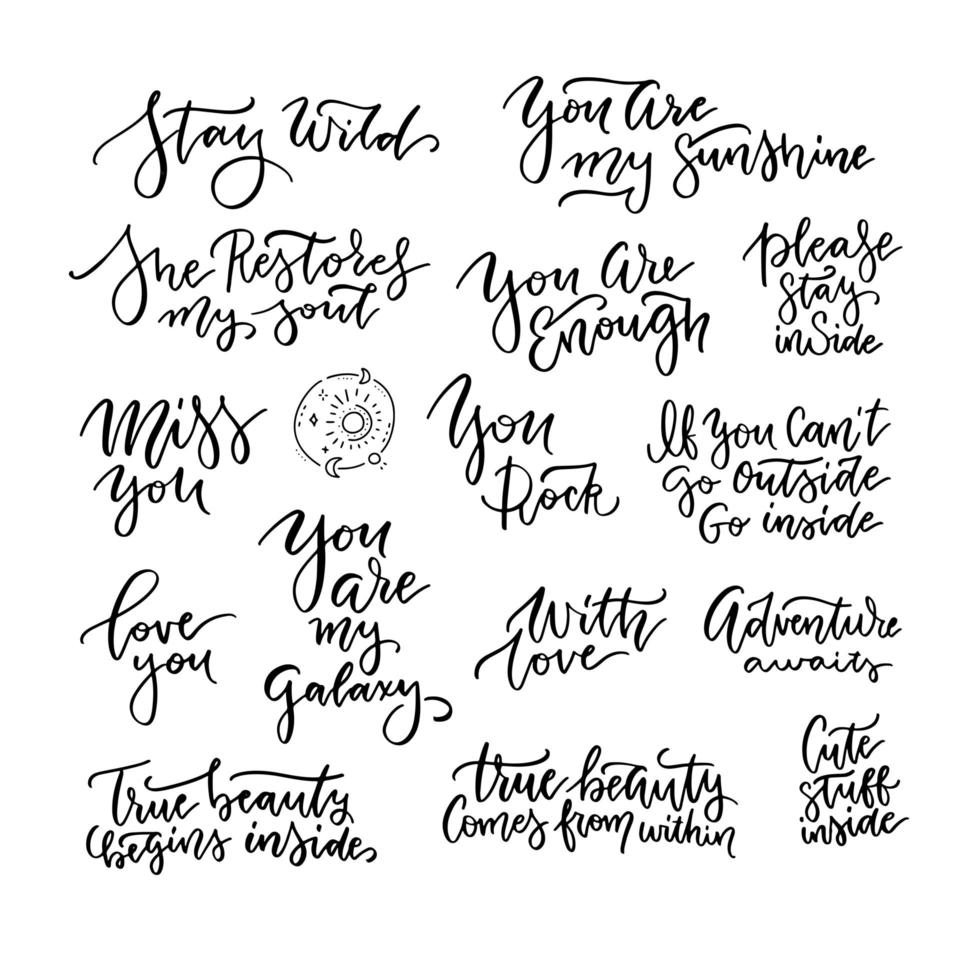 Stay Wild
You Are
my Sunshine
She Restores
my soul
You Are
Enough
please
stay
inside
Miss
you
You
Rock
If you Can't
Go outside
Go inside
You
are
my
Galaxy
love
you
With
love
Adventure
awaits
True beauty
begins inside
true beauty
Comes from within
Cute
stuff
inside